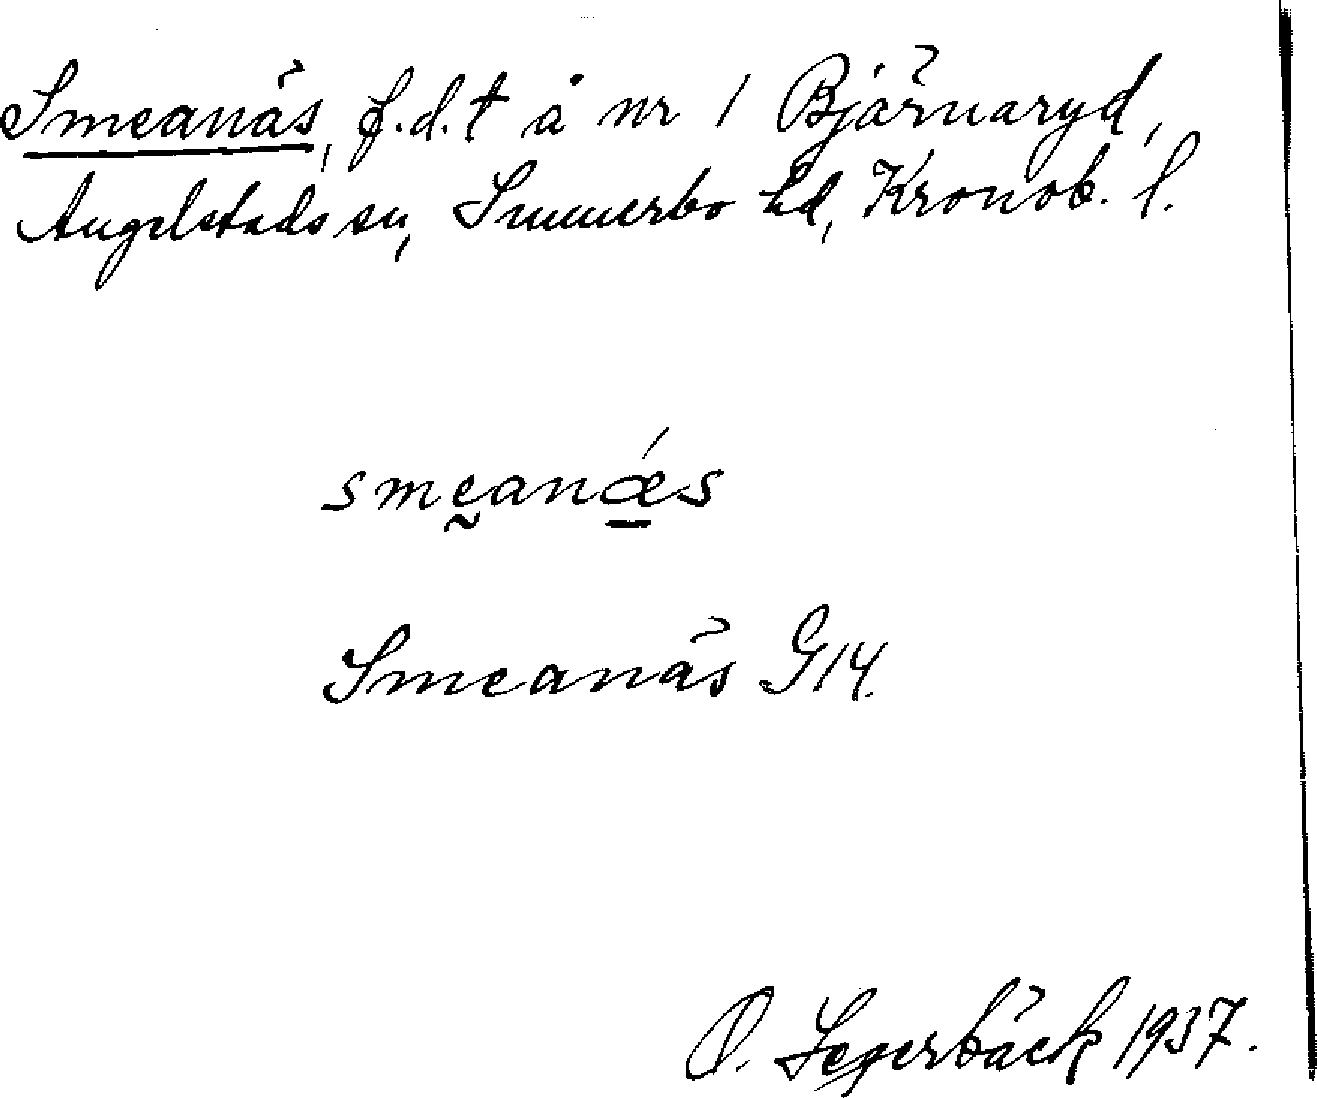 Smeanäs, f.d.t å nr 1 Bjärnaryd,
Angelstads sn, Sunnerbo hd, Kronob. l.
smeanǽs
Smeanäs G14.
O. Segerbäck 1937.